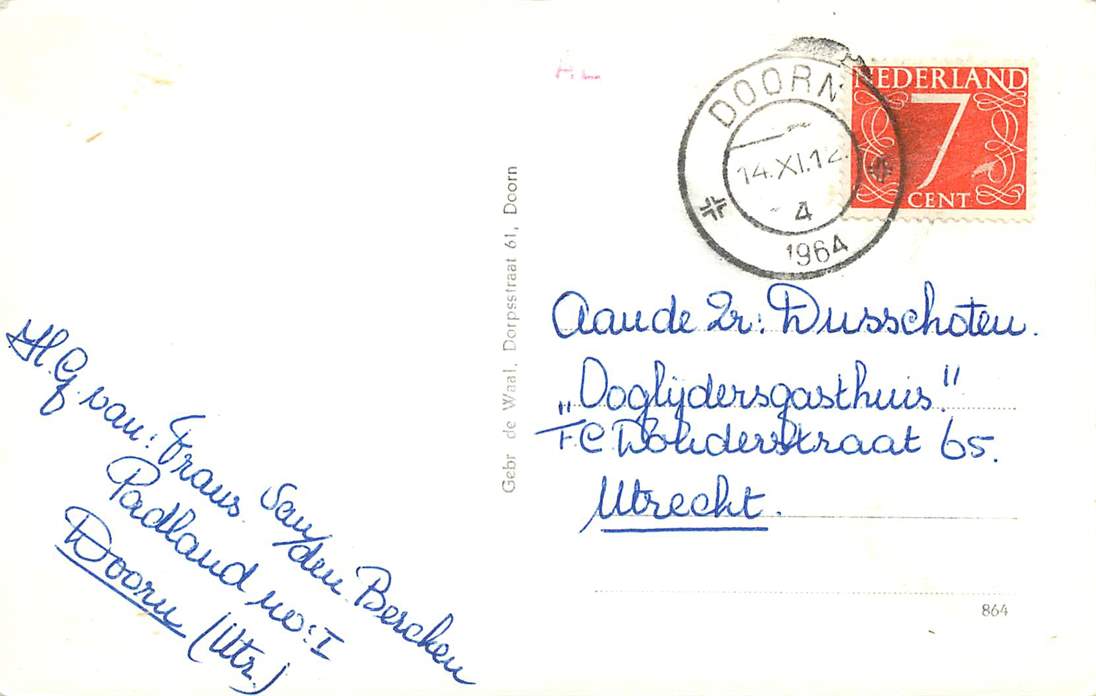 NEDERLAND
7
CENT
DOORN
14.XI.12.
4
1964
Aan de Zr: Dusschoten.
„Ooglijdersgasthuis."
F C Donderstraat 65.
Utrecht.
864
Gebr de Waal, Dorpsstraat 61, Doorn
H.G. van: Frans
den Bercken
Padland no: I
Doorn (Utr.)